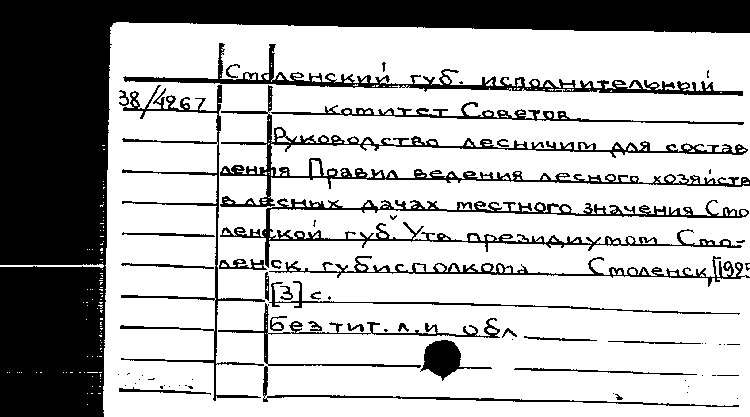 Смоленский губ. исполнительный
38/4267 комитет Советов
Руководство лесничим для состав
ления Правил ведения лесного хозяйств
в лесных дачах местного значения Смо
ленской губ. Утв президиумом Смо-
ленск. губисполкома Смоленск, [1925
[3] с.
Без тит. л. и обл